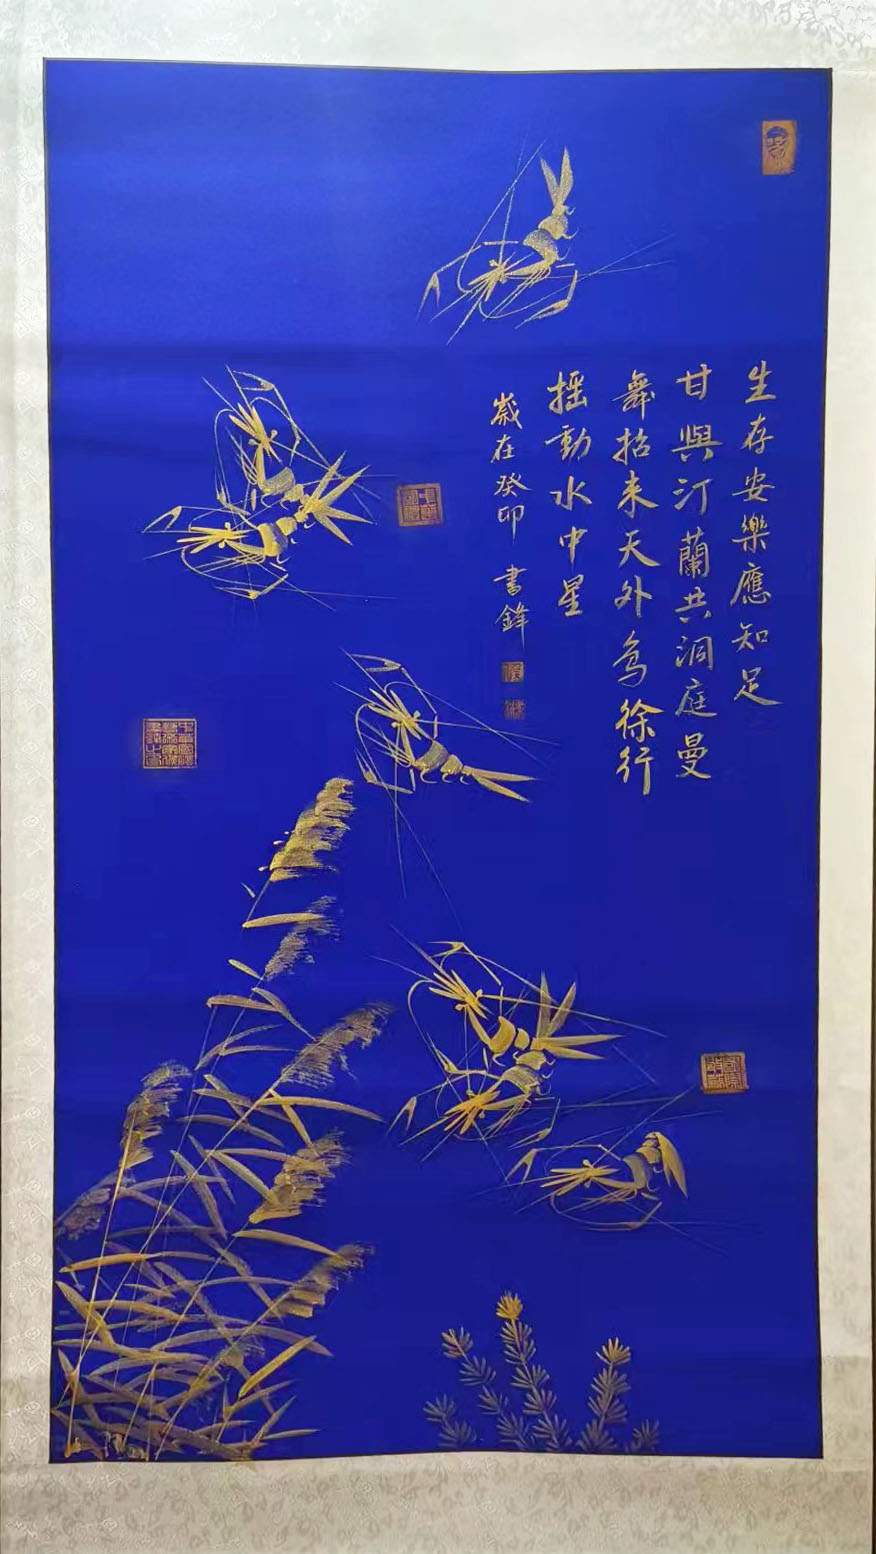 生存安樂應知足
甘與汀蘭共洞庭曼
舞招来天外鳥徐行
摇動水中星
歲在癸卯 書鋒